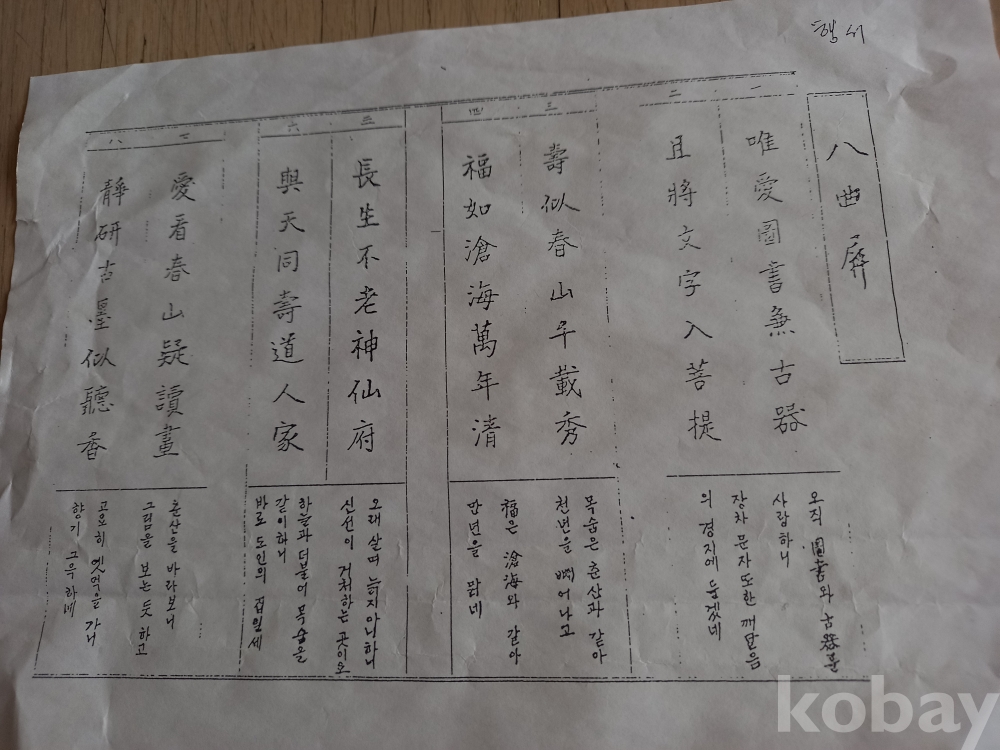 행서
八曲屛
一
唯愛圖書兼古器
二
且將文字入菩提
오직 圖書와 古器를
사랑하니
장차 문자 또한 깨달음
의 경지에 들겠네
三
壽似春山千載秀
四
福如滄海萬年清
목숨은 춘산과 같아
천년을 빼어나고
福은 滄海와 같아
만년을 맑네
長生不老神仙府
六
與天同壽道人家
오래 살며 늙지아니하니
신선이 거처하는 곳이오
하늘과 더불어 목숨을
같이하니
바로 도인의 집일세
愛看春山疑讀畫
八
靜研古墨似聽香
춘산을 바라보니
그림을 보는 듯 하고
고요히 옛먹을 가니
향기 그윽하네
kobay